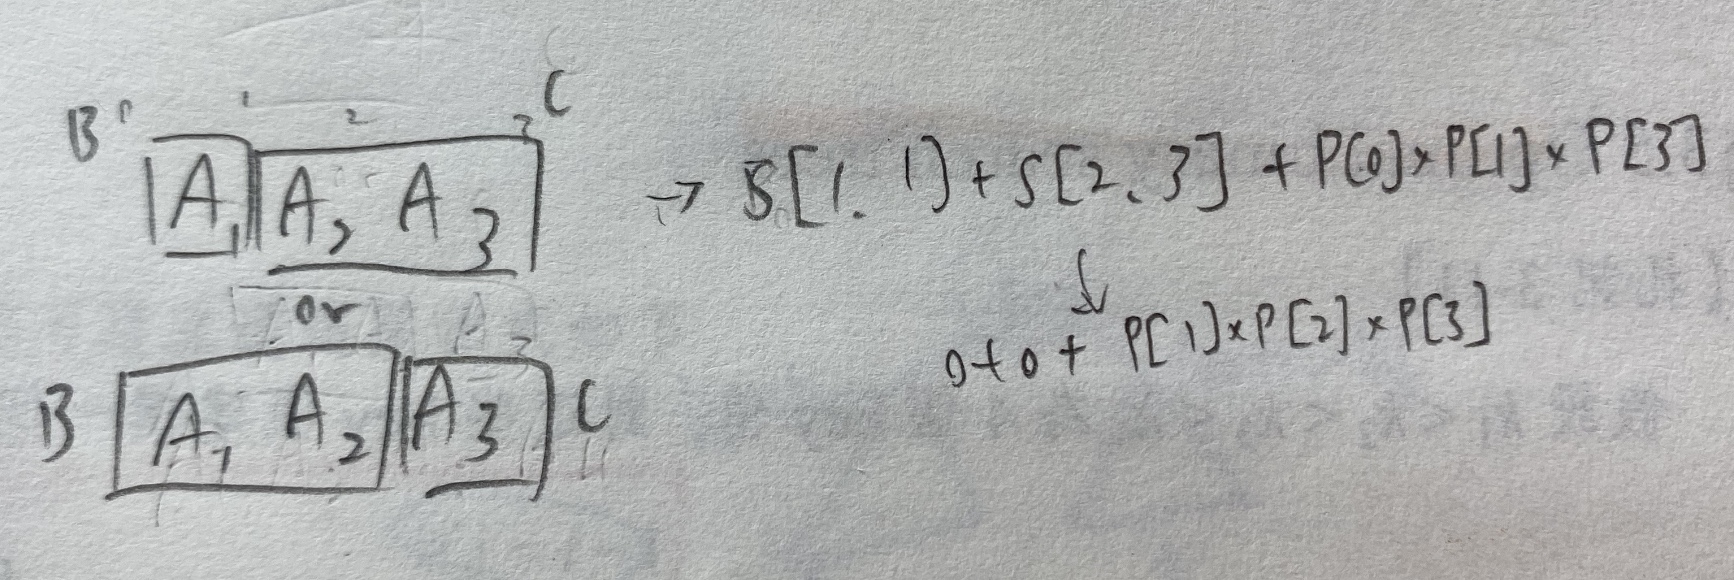 B 0 1 2 3 C
A₁ A₂ A₃ → S[1. 1] + S[2. 3] + P[0] × P[1] × P[3]
or
↓
0 + 0 + P[1] × P[2] × P[3]
B A₁ A₂ A₃ C